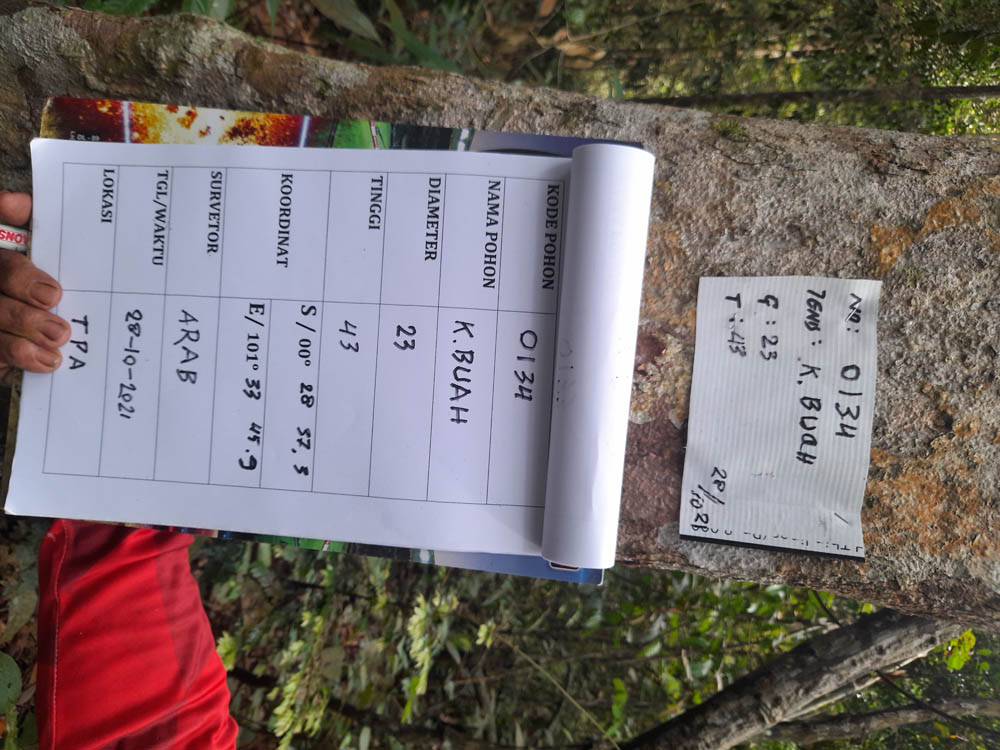 No: 0134
JENIS: K. BUAH
G: 23
T: 43
28/10
KODE POHON 0134
NAMA POHON K.BUAH
DIAMETER 23
TINGGI 43
KOORDINAT S / 00° 28 37,3
E/ 101° 33 45.9
SURVETOR ARAB
TGL/WAKTU 28-10-2021
LOKASI TPA